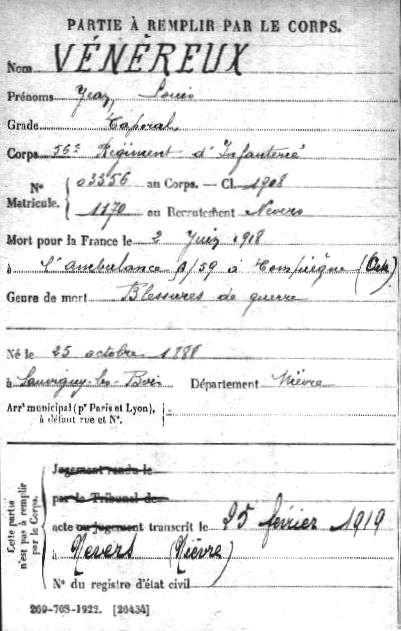 PARTIE À REMPLIR PAR LE CORPS.
Nom VÉNÉREUX
Prénoms Jean, Louis
Grade Caporal
Corps 56e Régiment d'Infanterie
N° Matricule. { 03556 au Corps. — Cl. 1908
1170 au Recrutement Nevers
Mort pour la France le 2 Juin 1918
à l'ambulance 9/59 à Compiègne (Oise)
Genre de mort Blessures de guerre
Né le 25 octobre 1888
à Sauvigny-les-Bois Département Nièvre
Arrt municipal (pr Paris et Lyon),
à défaut rue et N°.
Cette partie n'est pas à remplir par le Corps.
Jugement rendu le
par le Tribunal de
acte ou jugement transcrit le 25 février 1919
à Nevers (Nièvre)
N° du registre d'état civil
269-708-1922. [26434]